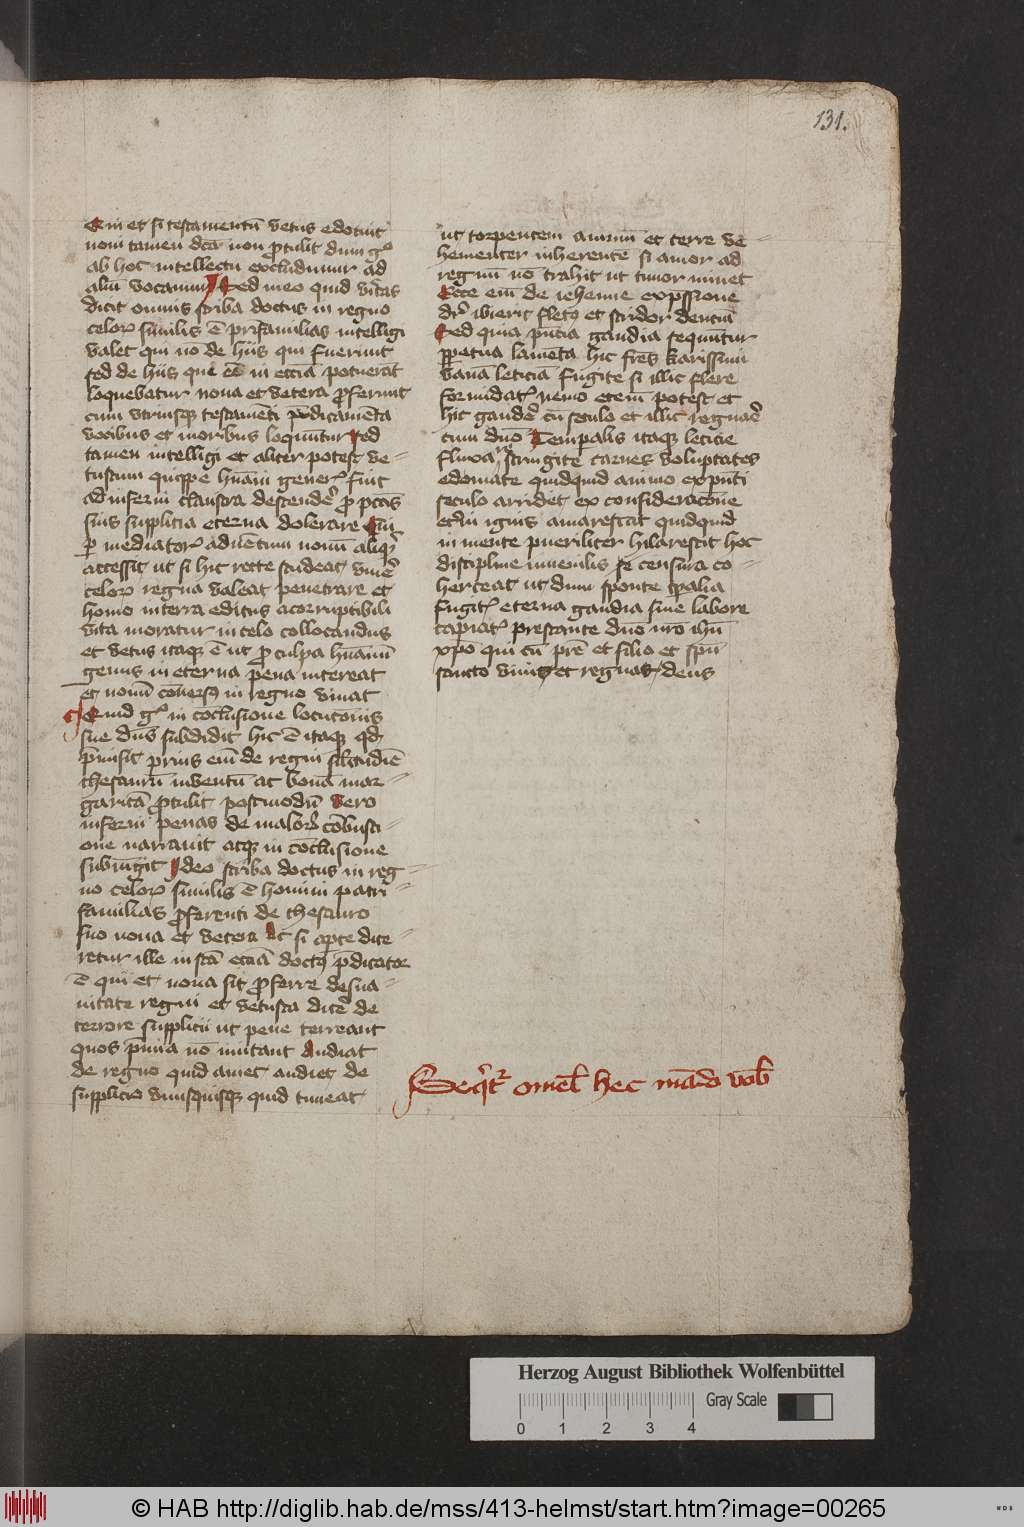 131.
Qui et si testamentū vetus edocuit
noui tamen dc̄a non ꝓtulit dum gͦ
ab hoc intellectu excludimur ad
aliū vocamur Sed in eo quid vītas
dicit omnis scriba doctus in regno
celoꝝ similis ē pr̄ifamilias intelligi
valet qui nō de hiis qui fuerunt
sed de hiis qui in ecc̄ia potuerāt
loquebatur noua et vetera ꝓferunt
cum vtriusqꝫ testamēti p̄dicamēta
vocibus et moribus loquūtur Sed
tamen intelligi et aliter potest ve-
tustum quippe hūani generꝭ fuit
ad inferni claustra descendēr ꝓ pctīs
suis supplicia eterna tolerare Cui
ꝑ mediatorꝭ aduētum nouū aliqͥd
accessit ut si hic recte studeat viuēr
celoꝝ regna valeat penetrare et
homo in terra editus a corruptibili
vita moriatur in celo collocandus
et vetus itaqꝫ ē ut ꝓ culpa hūanū
genus in eterna pena intereat
et nouū cōuersꝫ in regno viuat
Quid gͦ in cōclusione locutōnis
sue dn̄s subdidit hic ē itaqꝫ qd̄
p̄misit prius eni de regni sil̄itudiē
thesaurū inventū ac bonā mar-
garitā ꝓtulit postmodū vero
inferni penas de maloꝝ cōbusti-
one narrauit atqꝫ in cōclusione
subiūgit Ideo scriba doctus in reg-
no celoꝝ similis ē homini patri-
familias ꝓferenti de thesauro
suo noua et vetera Ac si aꝑte dice-
retur ille in scā ecc̄ia doctꝰ p̄dicator
ē qui et noua sit ꝓferre de sua-
uitate regni et vetusta dicē de
terrore supplicii ut pene terreant
quos p̄mia nō inuitant Audiat
de regno quid amet audiet de
supplicio vnusquisqꝫ quid timeat
ut torpentem animū et terre ve-
hementer inherentē si amor ad
regnū nō trahit ut timor minet
Ecce eni de iehenne exp̄ssione
dr̄ ibi erit fletꝰ et stridor dentiū
Sed quia p̄ntia gaudia sequūtur
ꝑpetua lamēta hic fr̄es karissimi
vanā leticiā fugite si illic flere
formidatꝭ nemo etenī potest et
hic gaudēr cū seculo et illic regnaēr
cum dn̄o Temporalis itaqꝫ leticie
fluxa stringite carnes voluptates
edomate quidquid animo ex p̄nti
seculo arridet ex consideracōne
et̄ni ignis amarescat quidquid
in mente pueriliter hilarescit hoc
discipline iuuenilis censura co-
herceat ut dum sponte tp̄alia
fugitꝭ eterna gaudia sine labore
capiatꝭ prestante dn̄o nr̄o ihū
xp̄o qui cū pr̄e et filio et sp̄u
sancto viuit et regnat deus
Seqͥtꝛ omel̄ hec mādo vob̄
Herzog August Bibliothek Wolfenbüttel
Gray Scale
0 1 2 3 4
© HAB http://diglib.hab.de/mss/413-helmst/start.htm?image=00265
WDB